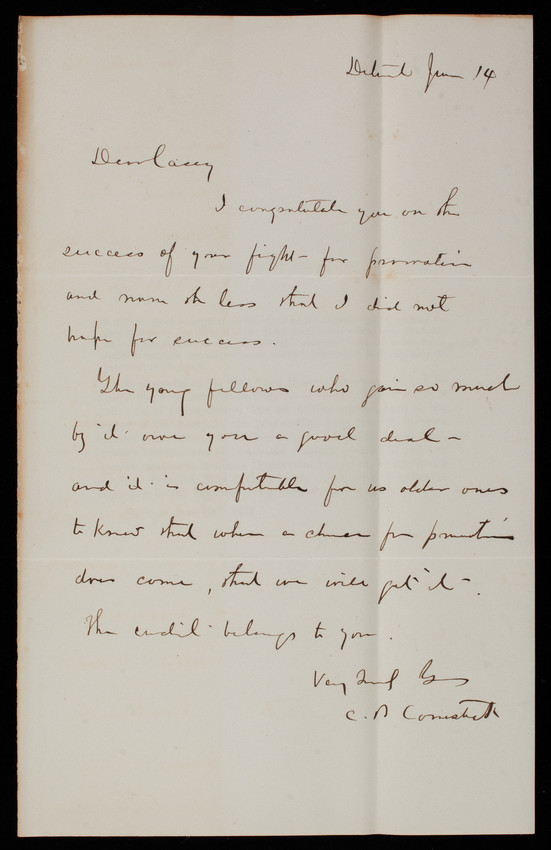 Detroit June 14
Dear Casey
I congratulate you on the
success of your fight for promotion
and none the less that I did not
hope for success.
The young fellows who gain so much
by it owe you a good deal -
and it is comfortable for us older ones
to know that when a chance for promotion
does come, that we will get it -.
The credit belongs to you.
Very Truly Yours
C. B Comstock